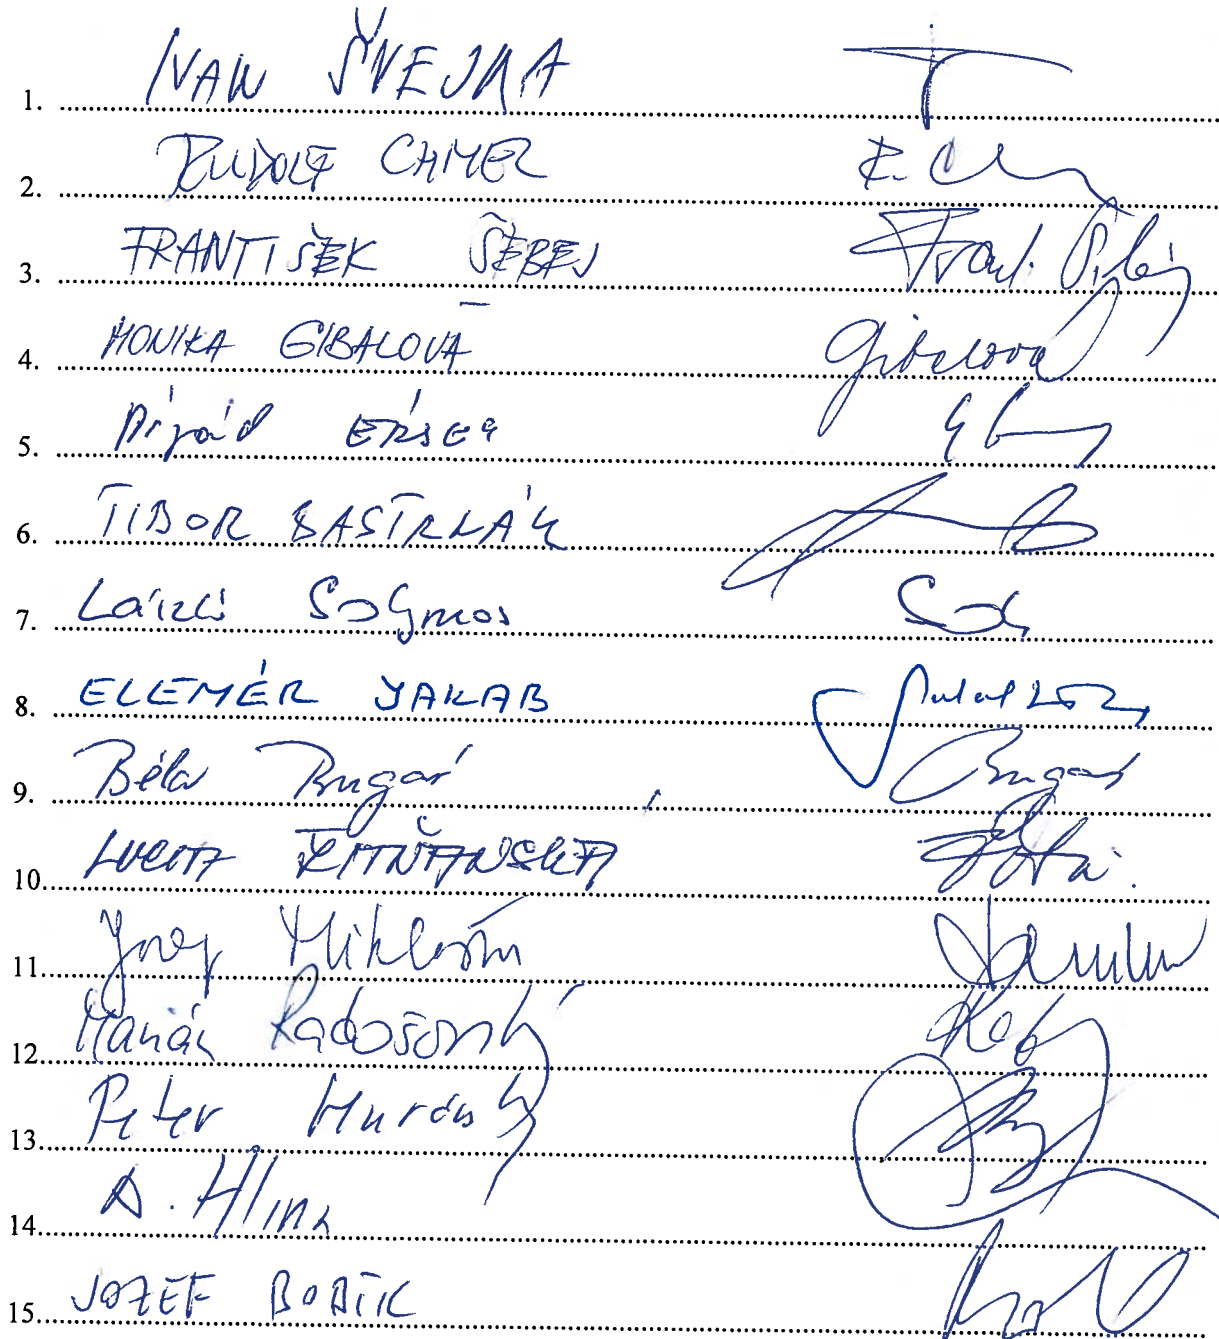 1. IVAN ŠVEJNA
2. RUDOLF CHMEL R. Ch
3. FRANTIŠEK ŠEBEJ Frant. Šebej
4. MONIKA GIBALOVÁ Gibalová
5. Árpád ÉRSEK
6. TIBOR BASTRNÁK
7. László Solymos Sol
8. ELEMÉR JAKAB
9. Béla Bugár Bugár
10. LUCIA ŽITŇANSKÁ
11. Jozef Mikloško
12. Marián Radošovský
13. Peter Muránsky
14. A. Hlina
15. JOZEF BOBÍK